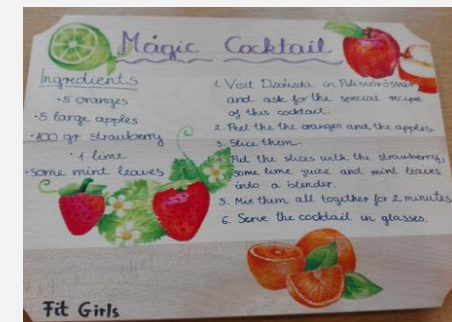 Magic Cocktail
Ingredients
• 5 oranges
• 5 large apples
• 400 gr strawberry
• 1 lime
• some mint leaves
1. Visit Dzsúzda in Pilisvörösvár
and ask for the special recipe
of this cocktail.
2. Peel the the oranges and the apples.
3. Slice them.
4. Put the slices with the strawberry,
some lime juice and mint leaves
into a blender.
5. Mix them all together for 2 minutes
6. Serve the cocktail in glasses.
Fit Girls